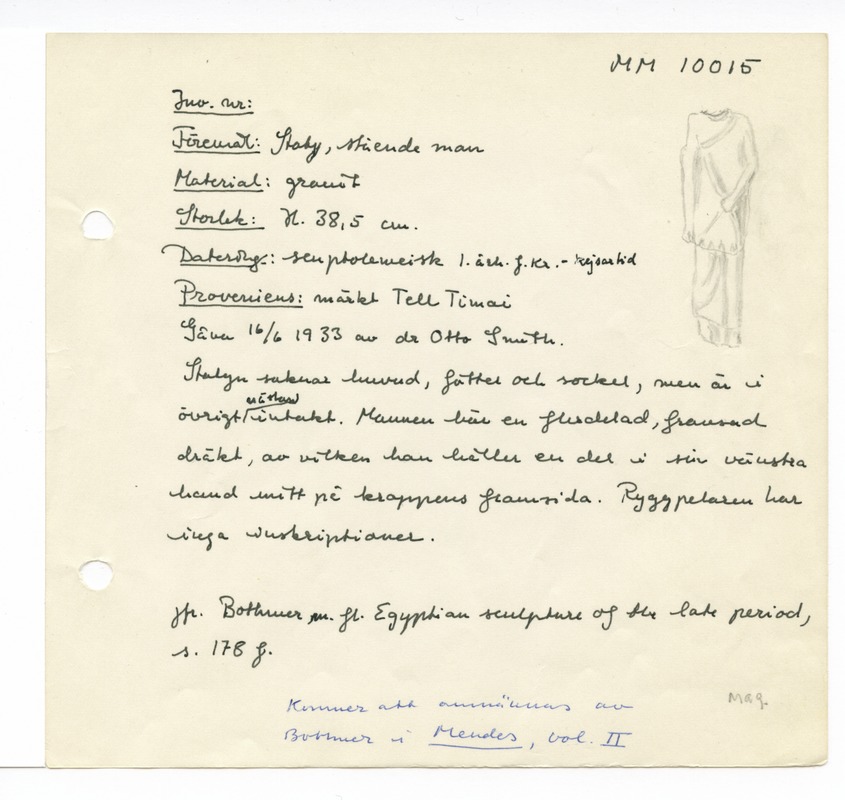 MM 10015
Inv. nr:
Föremål: Staty, stående man
Material: granit
Storlek: H. 38,5 cm.
Daterng.: senptolemeisk 1. årh. f. Kr. - kejsartid
Proveniens: märkt Tell Timai
Gåva 16/6 1933 av dr Otto Smith.
Statyn saknar huvud, fötter och sockel, men är i
nästan
övrigt intakt. Mannen bär en flerdelad, fransad
dräkt, av vilken han håller en del i sin vänstra
hand mitt på kroppens framsida. Ryggpelaren har
inga inskriptioner.
jfr. Bothmer, m. fl. Egyptian sculpture of the late period,
s. 178 f.
Mag.
Kommer att omnämnas av
Bothmer i Mendes, vol. II